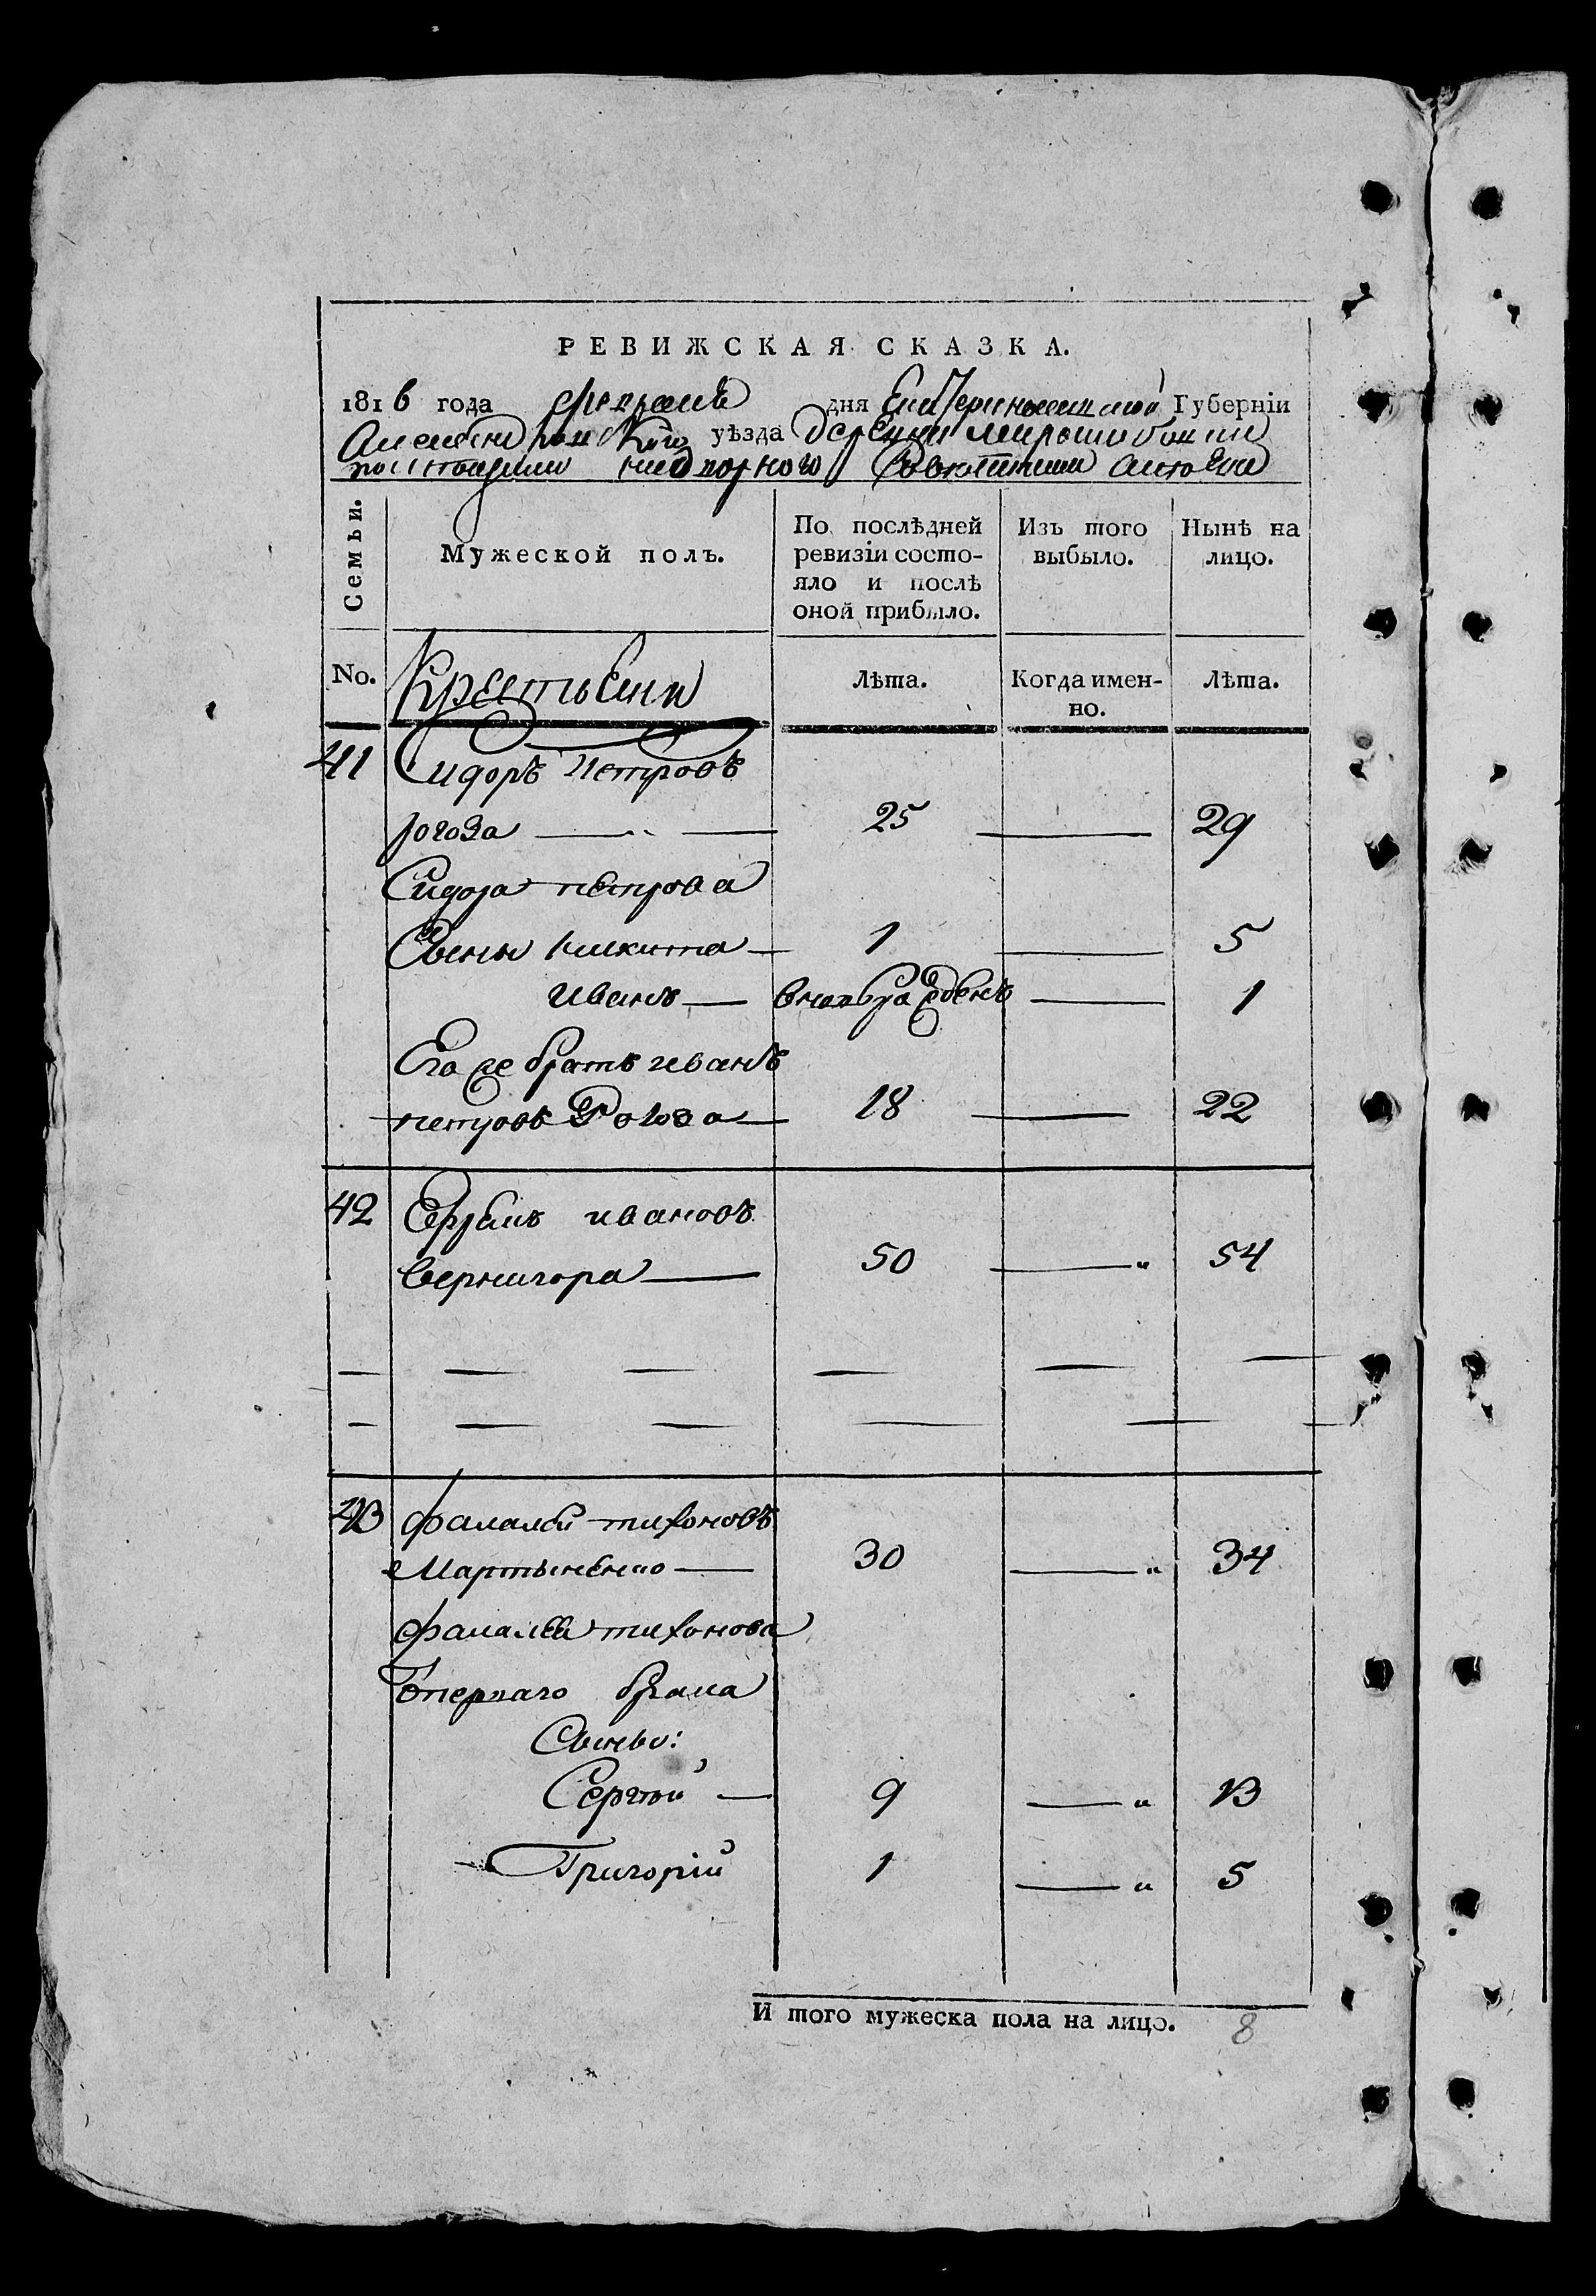 РЕВИЖСКАЯ СКАЗКА.
1816 года февраля дня Екатеринославской Губерніи
Александровского уѣзда деревни
надворного советника
Семьи. Мужеской полъ. По послѣдней ревизіи состояло и послѣ оной прибыло. Изъ того выбыло. Нынѣ на лицо.
No. Крестьяни Лѣта. Когда именно. Лѣта.
41 Сидоръ Петровъ
рогоза — 25 — 29
Сидора петрова
Сыны никита — 1 — 5
иванъ — — 1
Его же братъ иванъ
петровъ Рогоза — 18 — 22
42 Ефремъ ивановъ
Вернигора — 50 — " 54
— — — — — —
— — — — — —
43 фалалей тихоновъ
Мартыненко — 30 — " 34
фалалея тихонова
брата
Сыны:
Сергѣй — 9 — " 13
Григорій 1 — " 5
И того мужеска пола на лицо. 8